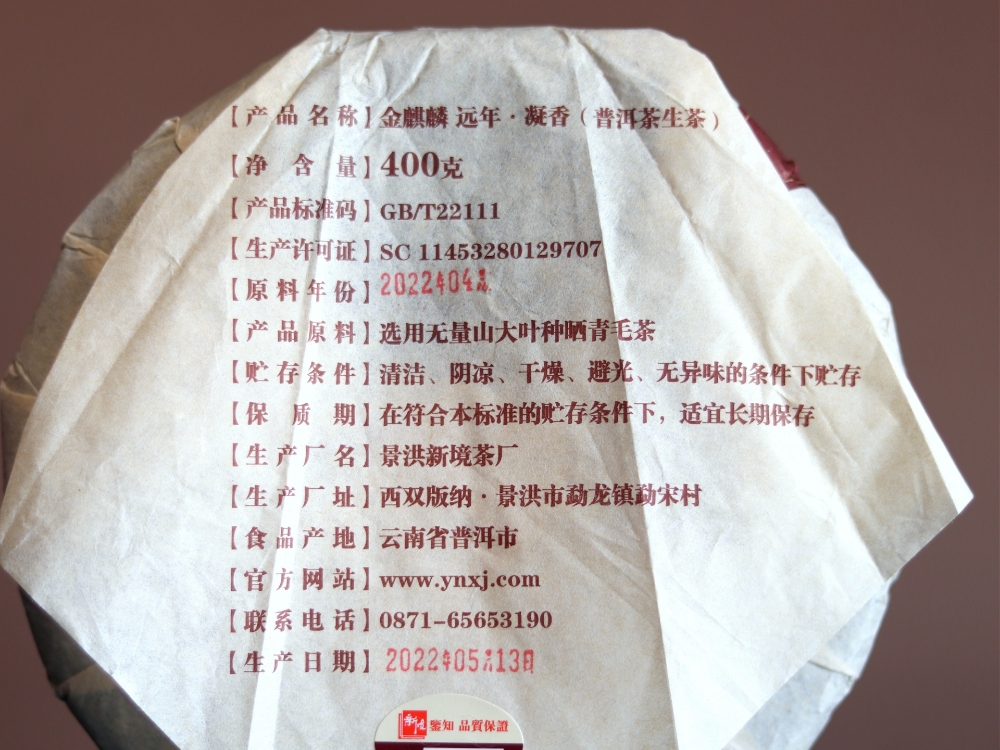 【产品名称】金麒麟 远年·凝香（普洱茶生茶）
【净含量】400克
【产品标准码】GB/T22111
【生产许可证】SC 11453280129707
【原料年份】2022年04月
【产品原料】选用无量山大叶种晒青毛茶
【贮存条件】清洁、阴凉、干燥、避光、无异味的条件下贮存
【保质期】在符合本标准的贮存条件下，适宜长期保存
【生产厂名】景洪新境茶厂
【生产厂址】西双版纳·景洪市勐龙镇勐宋村
【食品产地】云南省普洱市
【官方网站】www.ynxj.com
【联系电话】0871-65653190
【生产日期】2022年05月13日
鑒知 品質保證